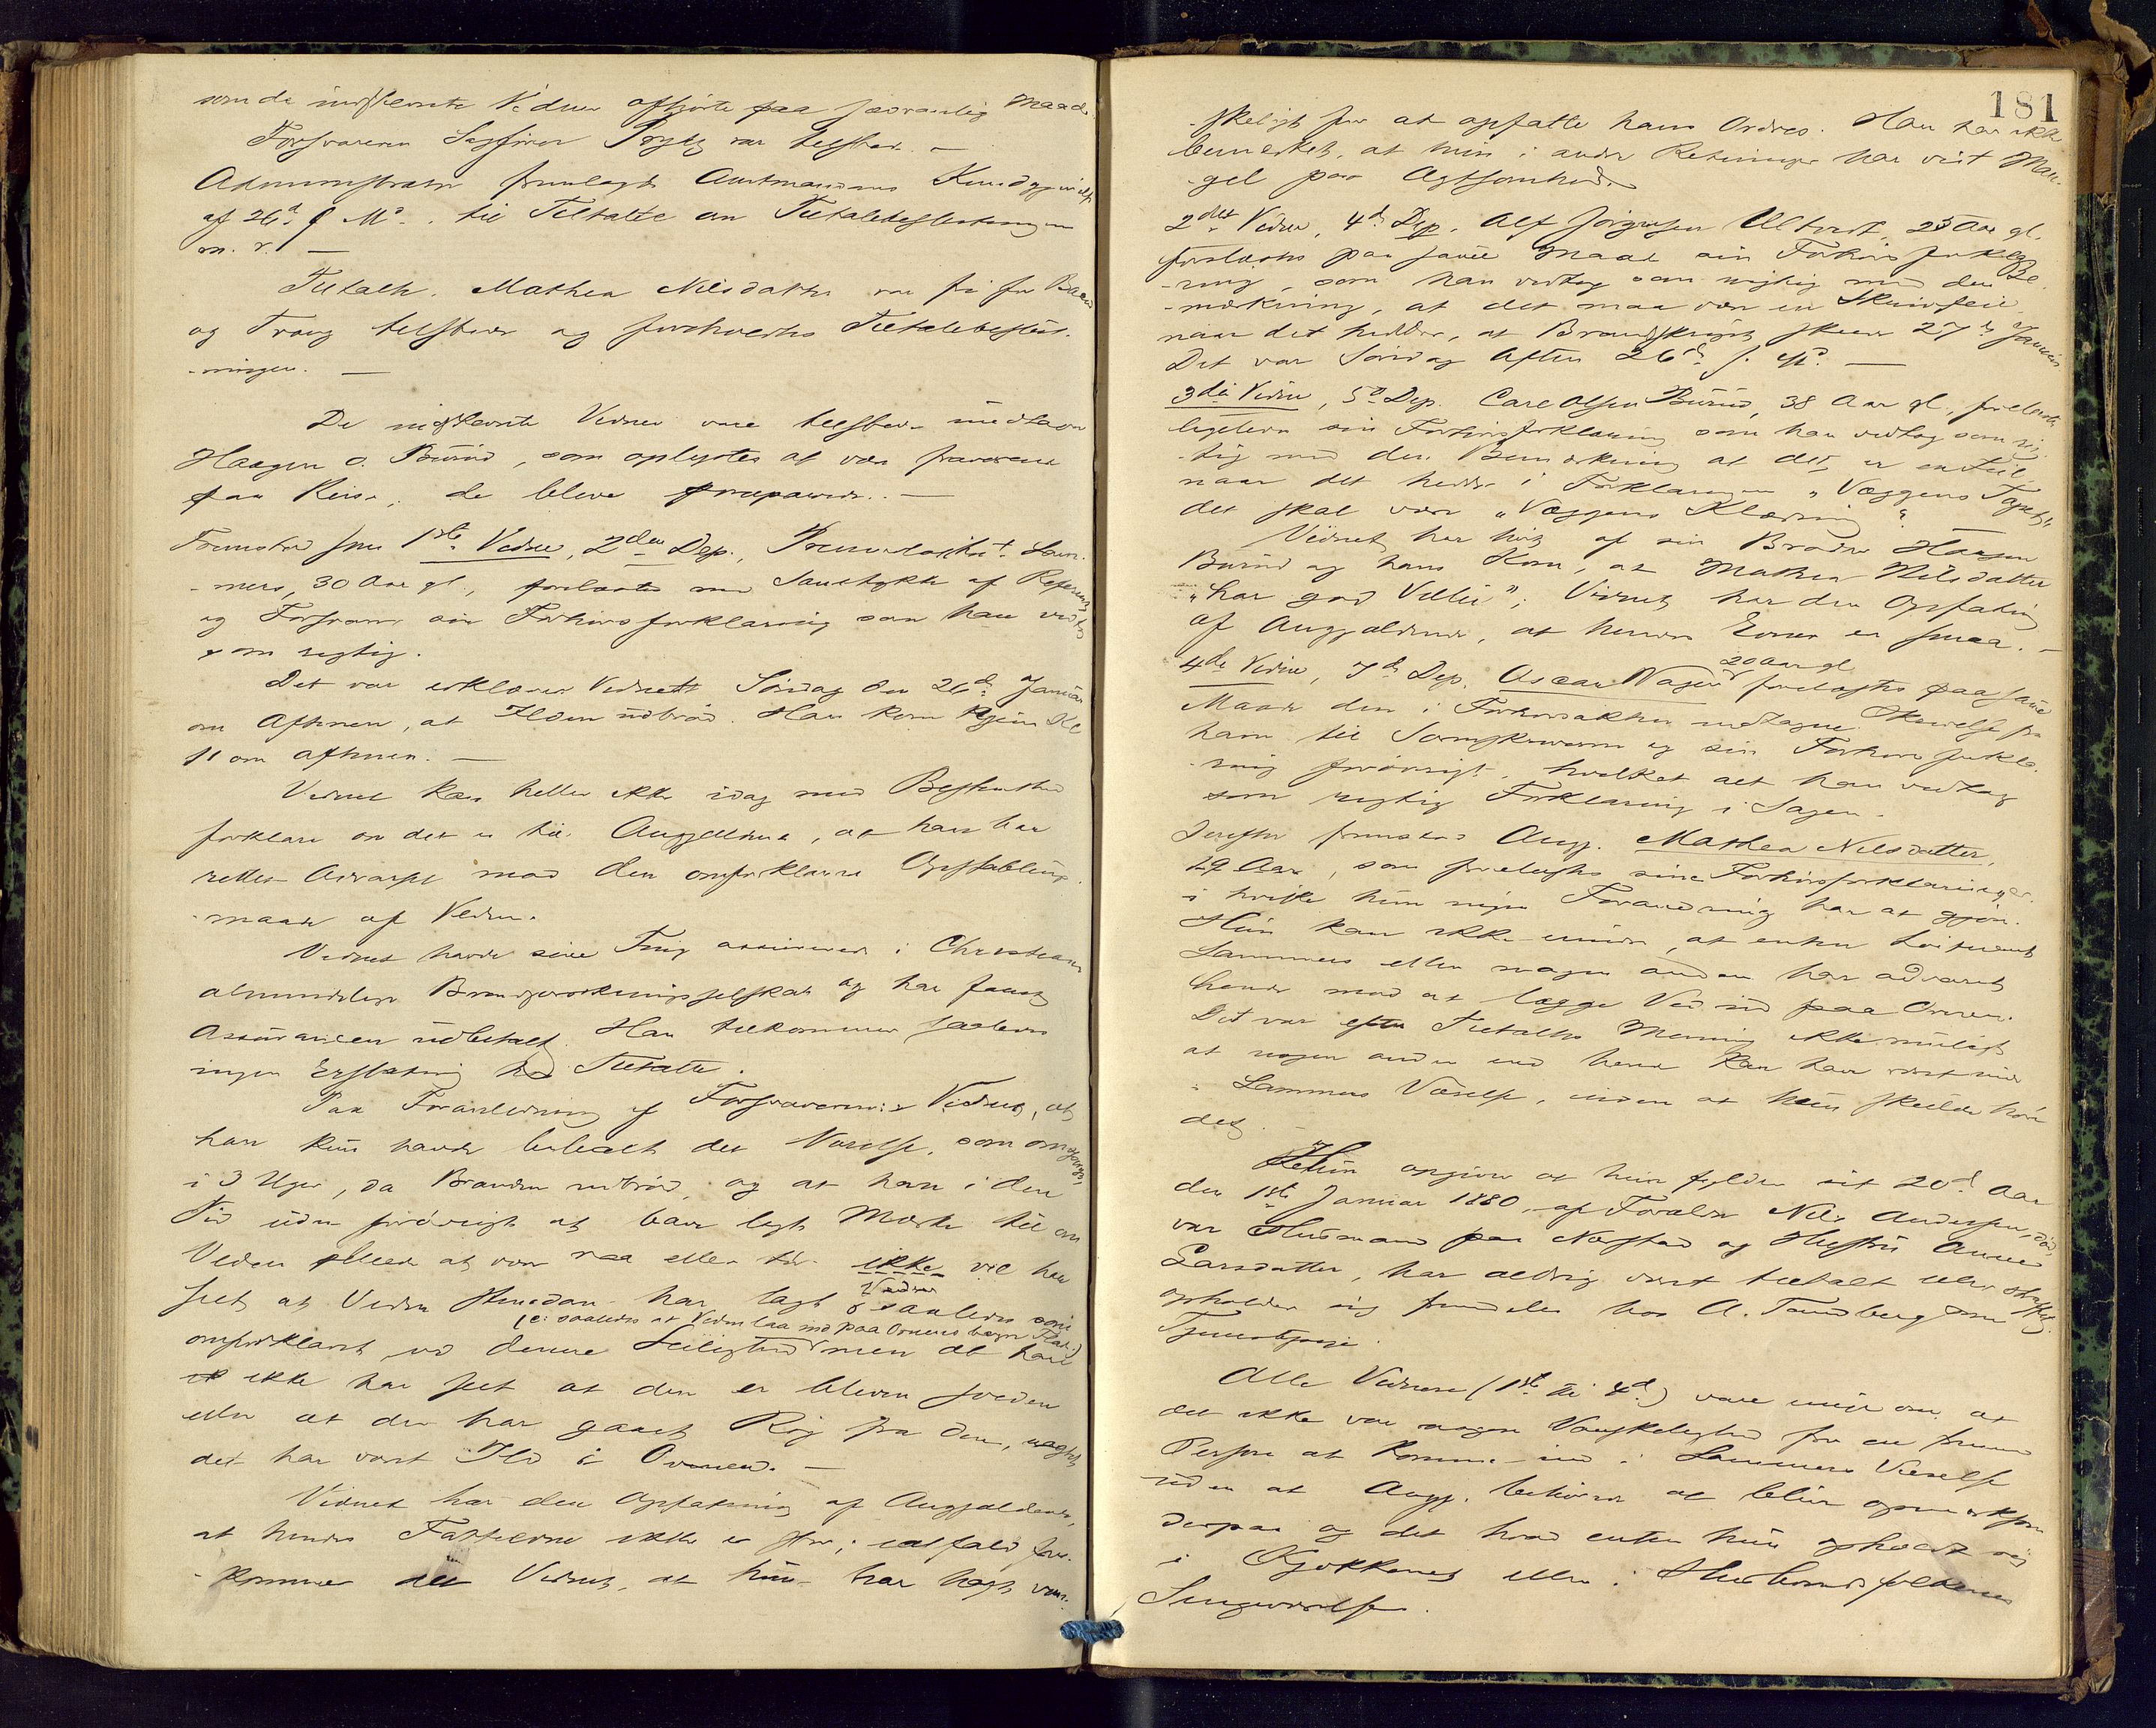 som de indstevnte Vidner afhjørte paa sædvanlig Maade.
Forsvareren Sagfører Prytz var tilstede. —
Administrator fremlagde Amtmandens Kundgjørelse
af 26d f. Md. til Tiltalte om Tiltalebeslutningen
m. v. —
Tiltalte Mathea Nilsdatter var fri for Baand
og Tvang tilstede og forehold­tes Tiltalebeslut-
-ningen. —
De indstevnte Vidner vare tilstede undtagen
Haagen O. Burud, som oplystes at være fraværende
paa Reise; de bleve præparerede. —
Fremstod som 1ste Vidne, 2den Dep., Premierløitnt. Lam-
-mers, 30 Aar gl., forelæstes med Samtykke af
og Forsvarer sin Forhørsforklaring som han vedtog
som rigtig.
Det var erklærer Vidnet Søndag den 26de Januar
om Aftenen, at Ilden udbrød. Han kom hjem Kl
11 om Aftenen. —
Vidnet kan heller ikke idag med Bestemthed
forklare om det er til Angjældende, at han har
rettet Advarsel mod den omforklarede Opstablings-
-maade af Veden.
Vidnet havde sine Ting assurerede i Christiania
almindelige Brandforsikringsselskab og har faaet
Assurancen udbetalt. Han tilkommer saaledes
ingen Erstatning hos Tiltalte.
Paa Foranledning af Forsvareren: Vidnet, at
han kun havde beboet det Værelse, som omspørges,
i 3 Uger, da Branden udbrød, og at han i den
Tid uden forøvrigt at have lagt Mærke til om
Veden pleiede at være raa eller tør ikke vil have
seet at Veden stundom har lagt Veden saaledes som
(ɔ: saaledes at Veden laa ind paa Ovnens Plade)
omforklaret ved denne Leilighed men at han
ikke har seet at den er bleven sveden
eller at der har gaaet Røg fra den, uagtet
det har vært Ild i Ovnen. —
Vidnet har den Opfatning af Angjældende,
at hendes Fatteevne ikke er stor; ialfald fore-
-kommer det Vidnet, at hun har havt van-
181
-skeligt for at opfatte hans Ordres. Han har ikke
bemærket, at hun i andre Retninger har vist Man-
-gel paa Agtsomhed.
2det Vidne, 4de Dep. Alf Jørgensen Ultvedt, 23 Aar gl.
forelæstes paa samme Maade sin Forhørsforkla-
-ring, som han vedtog som rigtig med den Be-
-mærkning, at det maa være en Skrivfeil
naar det hedder, at Brandskaden skede 27de Januar
Det var Søndag Aften 26de s. Md. —
3die Vidne, 5te Dep. Carl Olsen Burud, 38 Aar gl., forelæstes
ligeledes sin Forhørsforklaring som han vedtog som rig-
-tig med den Bemærkning at det er en Feil,
naar det hedder i Forklaringen „Væggens Tapet“
det skal være „Væggens Klædning“.
Vidnet har hørt af sin Broder Haagen
Burud og hans Kone, at Mathea Nilsdatter
„har god Villie“; Vidnet har den Opfatning
af Angjældende, at hendes Evner er smaa. —
4de Vidne, 7de Dep. Oscar Wagen 20 Aar gl forelæstes paa samme
Maade den i Forhørsakten indtagne Skrivelse fra
ham til Sorenskriveren og sin Forhørsforkla-
-ring forøvrigt, hvilket alt han vedtog
som rigtig Forklaring i Sagen.
Derefter fremstod Angj. Mathea Nilsdatter,
19 Aar, som forelæstes sine Forhørsforklaringer,
i hvilke hun ingen Forandring har at gjøre.
Hun kan ikke mindes, at enten Løitnant
Lammers eller nogen anden har advaret
hende mod at lægge Ved ind paa Ovnen.
Det var efter Tiltaltes Mening ikke muligt
at nogen anden end hende kan have været inde
i Lammers Værelse, uden at hun skulde høre
det. —
Hun opgiver at hun fyldte sit 20de Aar
den 1ste Januar 1880, af Forældre Nils Andersen, død,
var Husmand paa Næstad og Hustru Anne
Larsdatter, har aldrig været tiltalt eller straffet,
opholder sig fremdeles hos A. Tandberg som
Tjenestepige.
Alle Vidnerne (1ste til 4de) vare enige om, at
det ikke var nogen Vanskelighed for en fremmed
Person at komme ind i Lammers Værelse
uden at Angj. behøvede at blive opmærksom
derpaa og det hvad enten hun opholdt sig
i Kjøkkenet eller i Husbondsfolkenes
Sengeværelse.